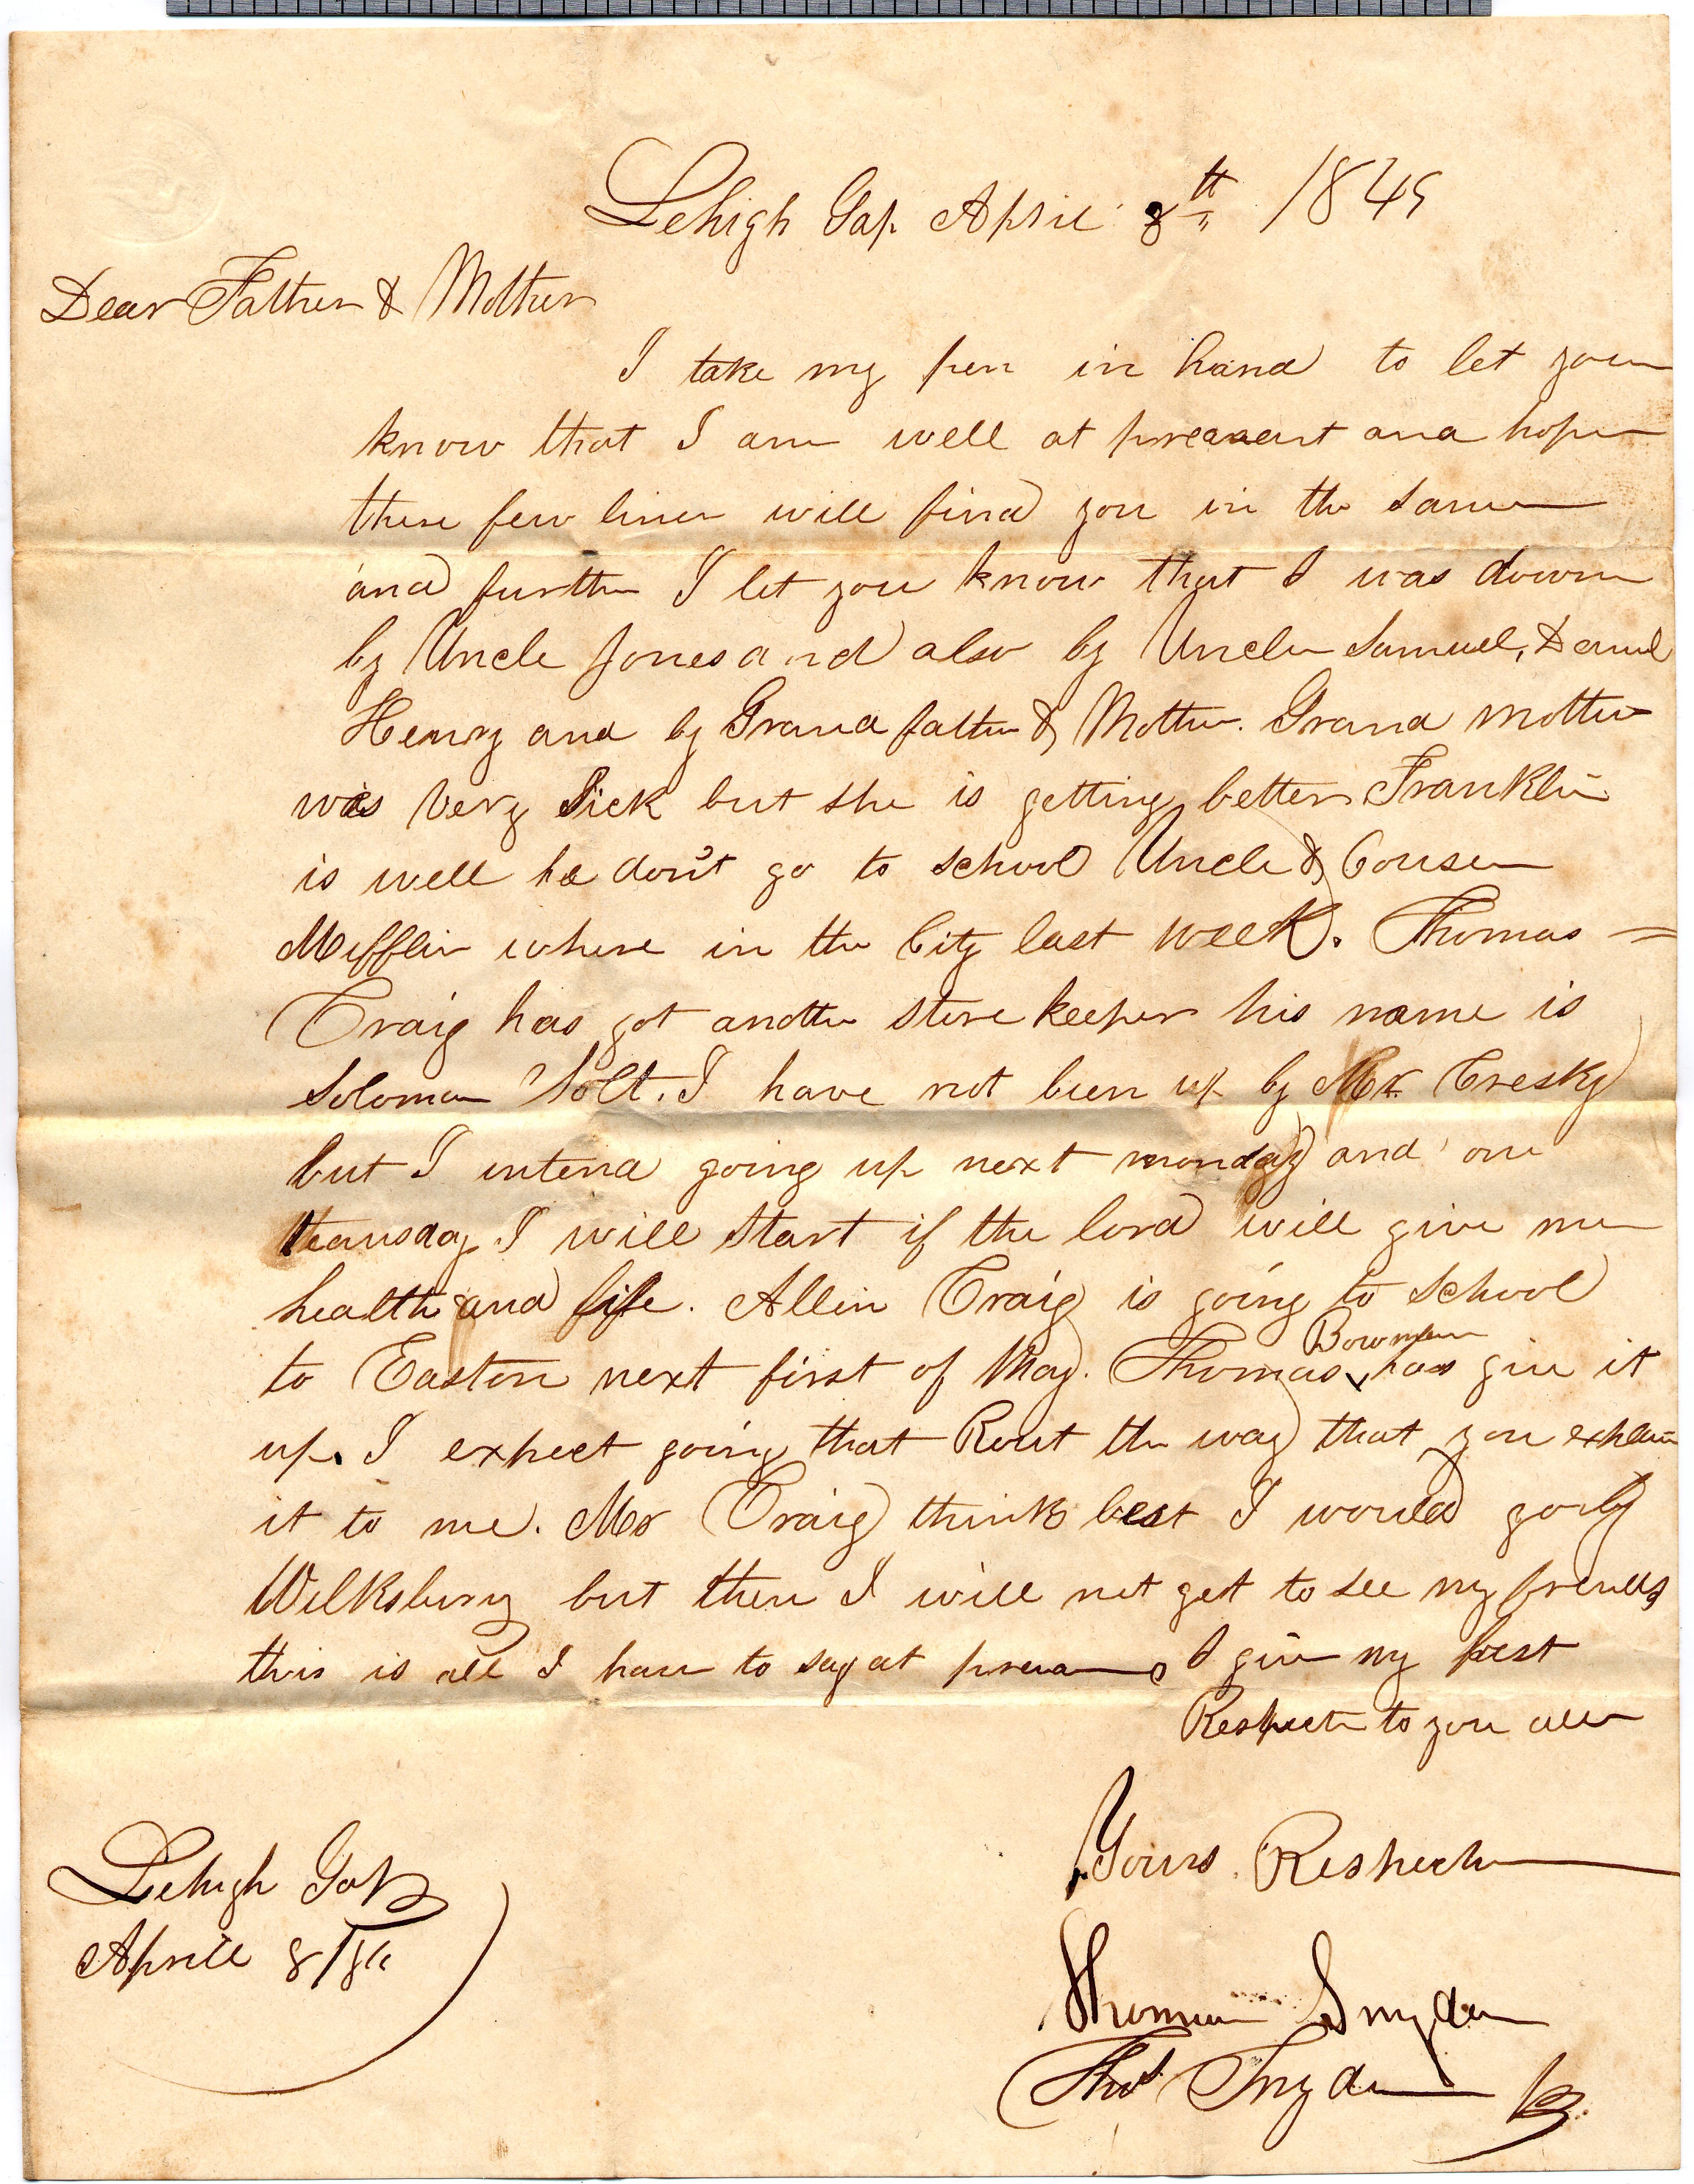 Lehigh Gap April 8th 1849
Dear Father & Mother
I take my pen in hand to let you
know that I am well at preasent and hope
these few lines will find you in the same
and further I let you know that I was down
by Uncle Jones and also by Uncle Samuel, Daniel
Henry and by Grand father & Mother. Grand mother
was very Sick but she is getting better Franklin
is well he don't go to school Uncle & Cousen
Mifflin where in the City last week. Thomas =
Craig has got another store keeper his name is
Soloman Solt. I have not been up by Mr Cresky
but I intend going up next monday and on
I will start if the lord will give me
health and life. Allen Craig is going to School
to Easton next first of May. Thomas Bowman has give it
up. I expect going that Rout the way that you explain
it to me. Mr Craig think best I would go by
Wilksbury but then I will not get to see my frends
this is all I have to say at I give my best
Respects to you all
Yours Respect
Thomas Snyder
Thos Snyder
Lehigh Gap
April 8